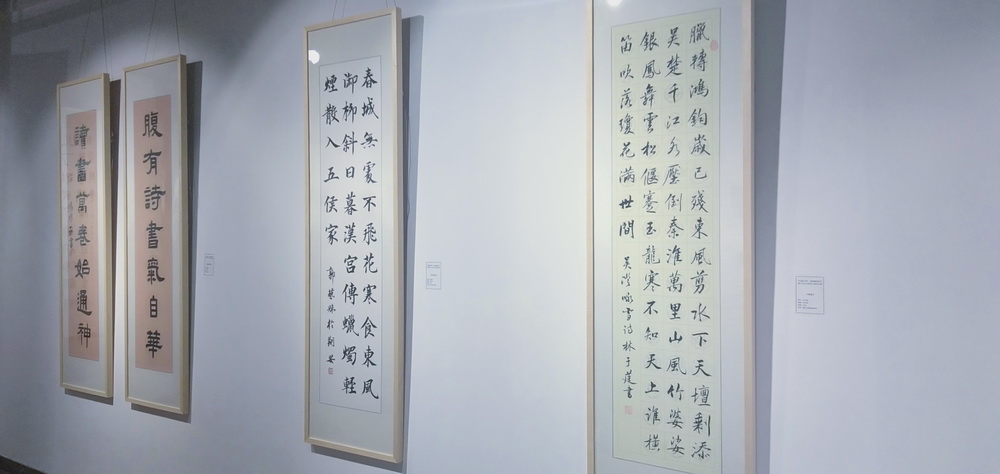 臘轉鴻鈞歲已殘東風剪水下天壇剩添
吳楚千江水壓倒秦淮萬里山風竹婆娑
銀鳳舞雲松偃蹇玉龍寒不知天上誰橫
笛吹落瓊花滿世間 吴澄咏雪詩林于書
春城無處不飛花寒食東風
御柳斜日暮漢宮傳蠟燭輕
煙散入五侯家
腹有詩書氣自華
讀書萬卷始通神